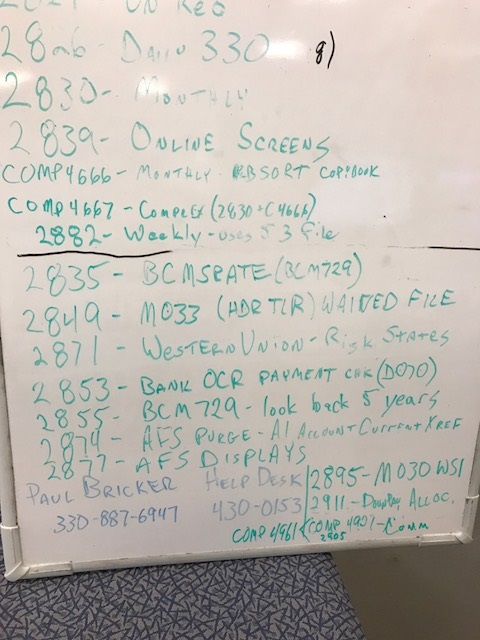 28 - Daily 330
2830 - Monthly
2839 - Online Screens
COMP4666 - Monthly: RBSORT copybook
COMP4667 - Complex (2830 + C4666)
2882 - Weekly - uses 53 File
2835 - BCMSRATE (BCM729)
2849 - M033 (HDR TLR) WAIVED FILE
2871 - Western Union - Risk States
2853 - Bank OCR payment chk (D070)
2855 - BCM 729 - look back 5 years
2874 - AFS purge - A1 Account + Current XREF
2877 - AFS DISPLAYS
PAUL BRICKER HELP DESK
330-887-6947 430-0153
2895 - M030WS1
2911 - Alloc.
g)